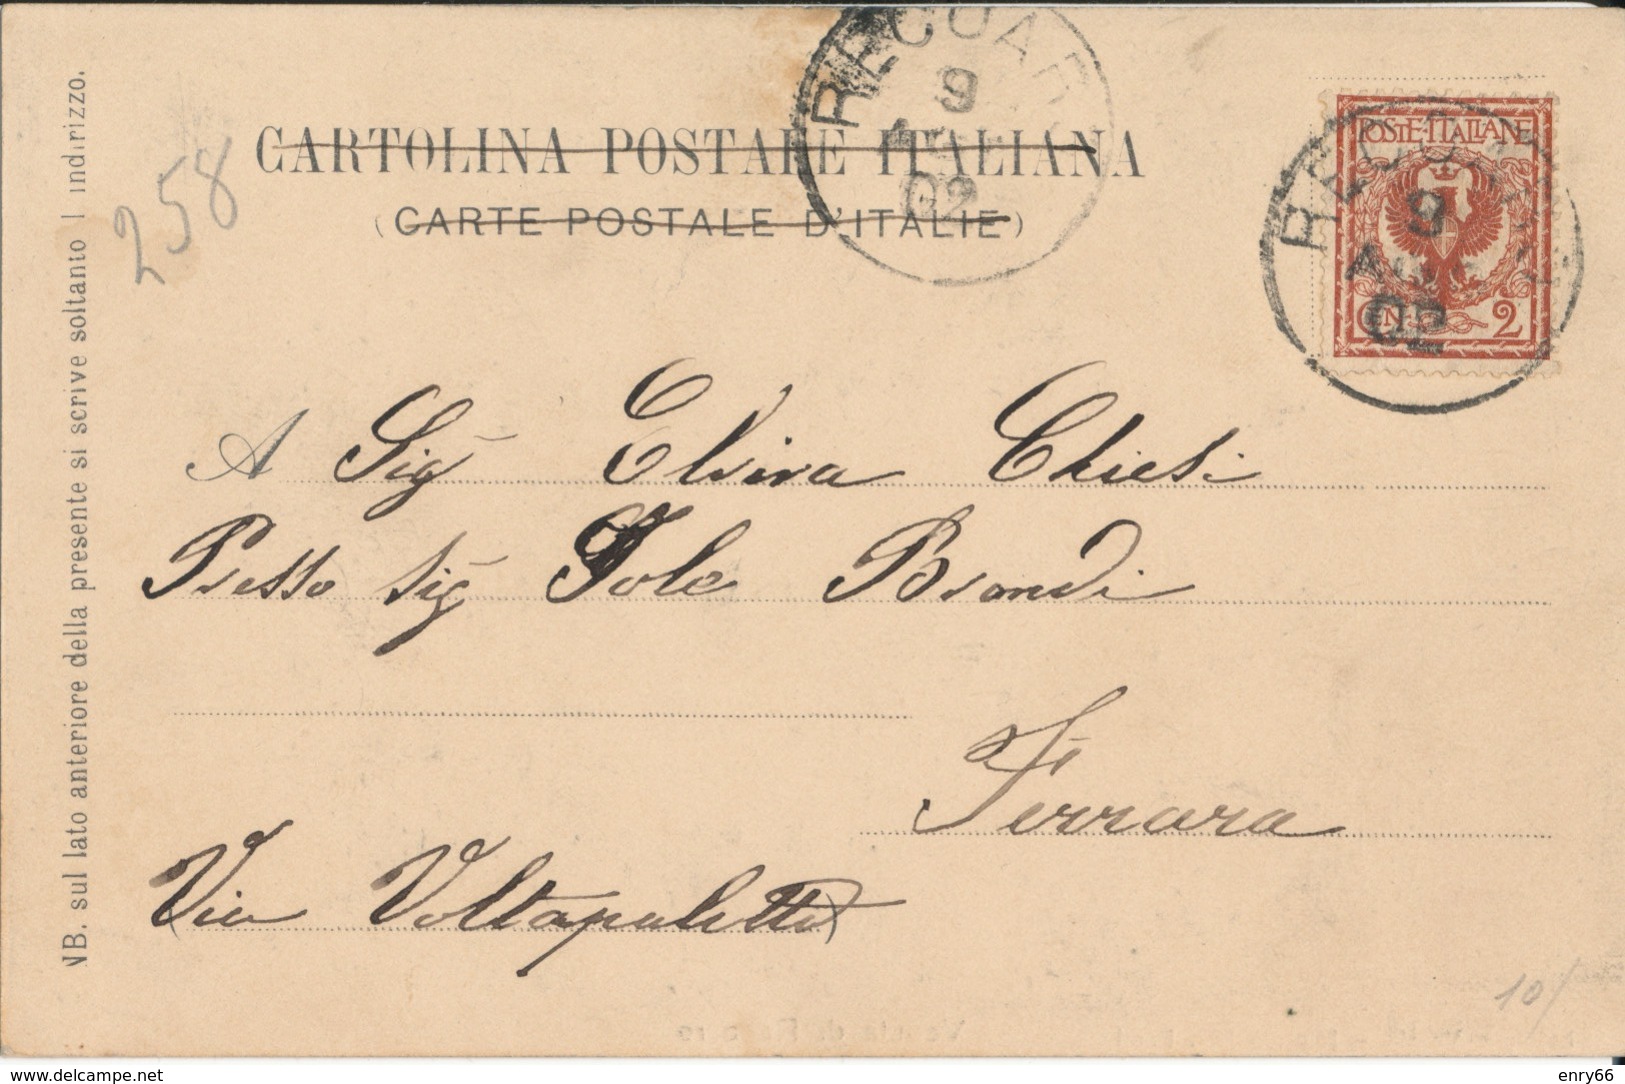 CARTOLINA POSTALE ITALIANA
(CARTE POSTALE D'ITALIE)
RECOARO
9
02
POSTE·ITALIANE
CEN. 2
RECOARO
9
AGO
02
258
A Sig Elvira Chiesi
Presso sig Jole Brondi
Ferrara
Via Voltapaletto
NB. sul lato anteriore della presente si scrive soltanto l'indirizzo.
10/
enry66
www.delcampe.net